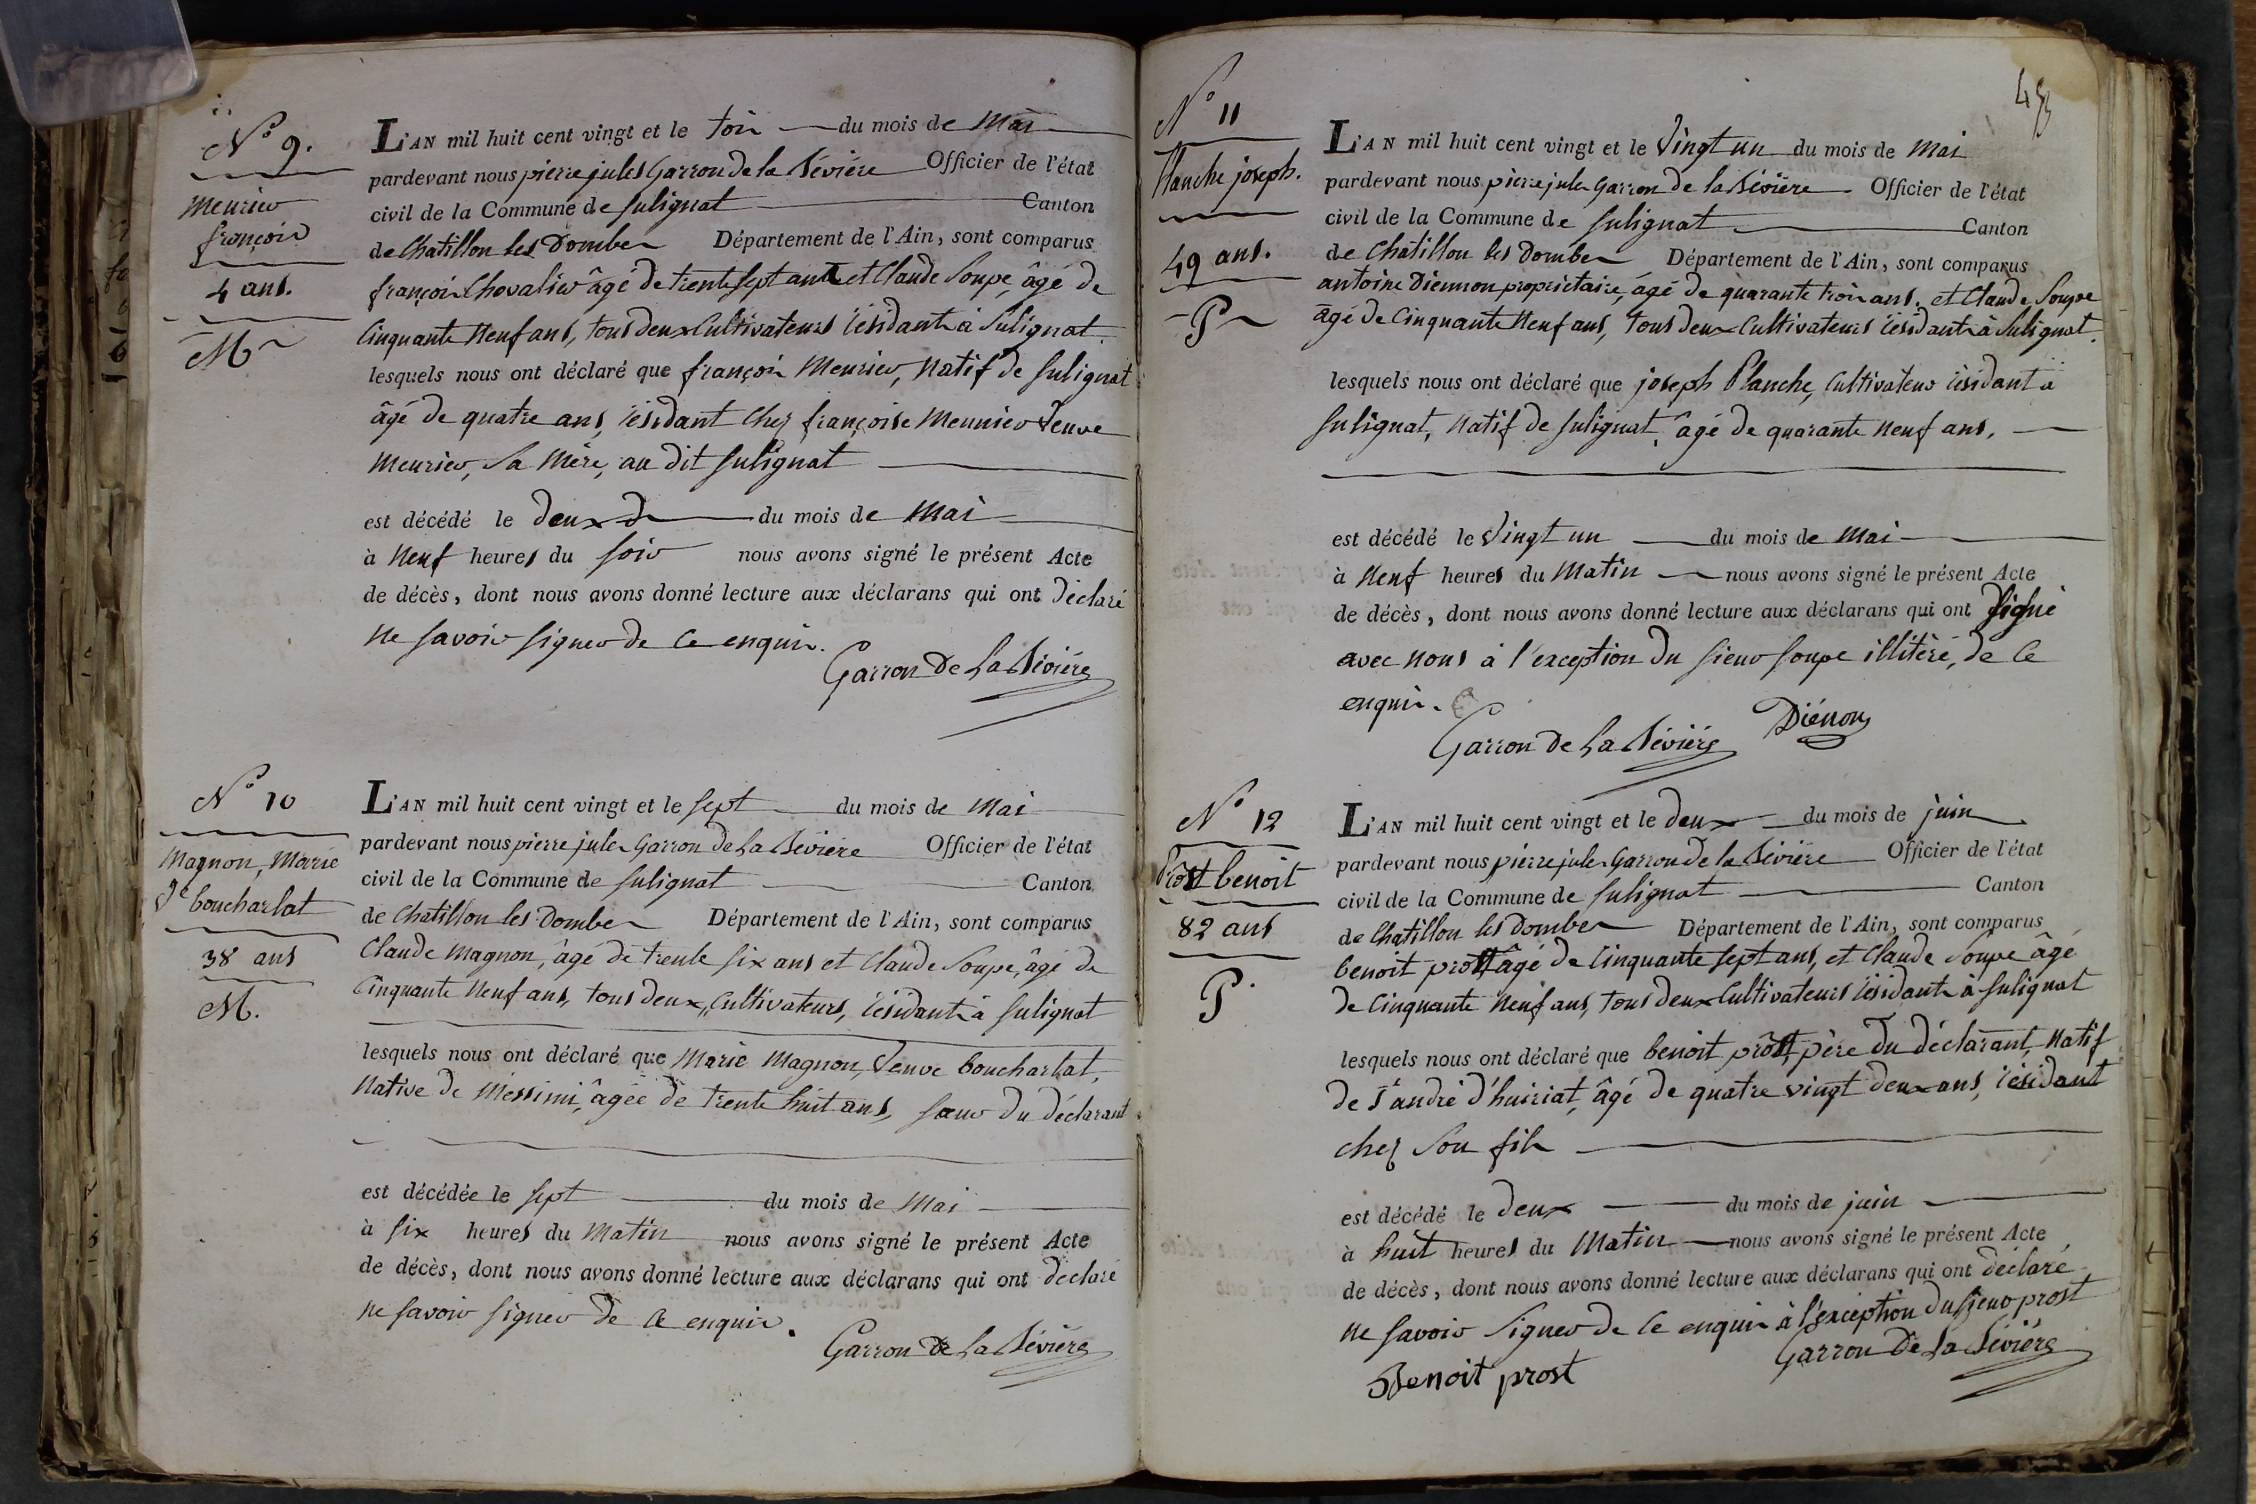 N° 9.
Meurier
françois
4 ans.
M
L'AN mil huit cent vingt et le trois du mois de Mai
pardevant nous pierre jules Garron de la Bévière Officier de l'état
civil de la Commune de Sulignat Canton
de Chatillon les Dombes Département de l'Ain, sont comparus
françois Chevalier âgé de trente sept ans et Claude Soupe, âgé de
Cinquante Neuf ans, tous deux Cultivateurs résidants à Sulignat.
lesquels nous ont déclaré que françois Meurier, Natif de Sulignat
âgé de quatre ans, résidant Chez françoise Meunier Veuve
Meurier, Sa Mère, au dit Sulignat
est décédé le deux du mois de Mai
à Neuf heures du Soir nous avons signé le présent Acte
de décès, dont nous avons donné lecture aux déclarans qui ont Déclaré
Ne Savoir Signer de Ce enquis.
Garron De La Bévière
N° 10
Magnon, Marie
Ve boucharlat
38 ans
M.
L'AN mil huit cent vingt et le Sept du mois de Mai
pardevant nous pierre jules Garron de La Bévière Officier de l'état
civil de la Commune de Sulignat Canton
de Chatillon les Dombes Département de l'Ain, sont comparus
Claude Magnon, âgé de trente Six ans et Claude Soupe, âgé de
Cinquante Neuf ans, tous deux Cultivateurs, résidants à Sulignat
lesquels nous ont déclaré que Marie Magnon, Veuve boucharlat,
Native de Messimi, âgée de trente huit ans, Sœur du déclarant
est décédée le Sept du mois de Mai
à Six heures du Matin nous avons signé le présent Acte
de décès, dont nous avons donné lecture aux déclarans qui ont déclaré
Ne Savoir Signer de Ce enquis.
Garron De La Bévière
N° 11
Planche joseph.
49 ans.
P
L'AN mil huit cent vingt et le Vingt un du mois de Mai
pardevant nous pierre jules Garron de la Bévière Officier de l'état
civil de la Commune de Sulignat Canton
de Chatillon les Dombes Département de l'Ain, sont comparus
antoine Diennon propriétaire, âgé de quarante trois ans, et Claude Soupe
âgé de Cinquante Neuf ans, tous deux Cultivateurs résidants à Sulignat.
lesquels nous ont déclaré que joseph Planche, Cultivateur résidant à
Sulignat, Natif de Sulignat, âgé de quarante Neuf ans.
est décédé le Vingt un du mois de Mai
à Neuf heures du Matin nous avons signé le présent Acte
de décès, dont nous avons donné lecture aux déclarans qui ont Signé
avec Nous à l'exception du Sieur Soupe illitéré, de Ce
enquis.
Garron De La Bévière Diénon
N° 12
Prost benoit
82 ans
P.
L'AN mil huit cent vingt et le deux du mois de juin
pardevant nous pierre jules Garron de la Bévière Officier de l'état
civil de la Commune de Sulignat Canton
de Chatillon les Dombes Département de l'Ain, sont comparus
benoit prost âgé de Cinquante Sept ans, et Claude Soupe âgé
de Cinquante Neuf ans, tous deux Cultivateurs résidants à Sulignat
lesquels nous ont déclaré que benoit prost, père du déclarant, Natif
de St andré d'huiriat, âgé de quatre vingt deux ans, résidant
chez Son fils
est décédé le deux du mois de juin
à huit heures du Matin nous avons signé le présent Acte
de décès, dont nous avons donné lecture aux déclarans qui ont déclaré
Ne Savoir Signer de Ce enquis à l'exception du Sieur prost
Benoit prost Garron De La Bévière